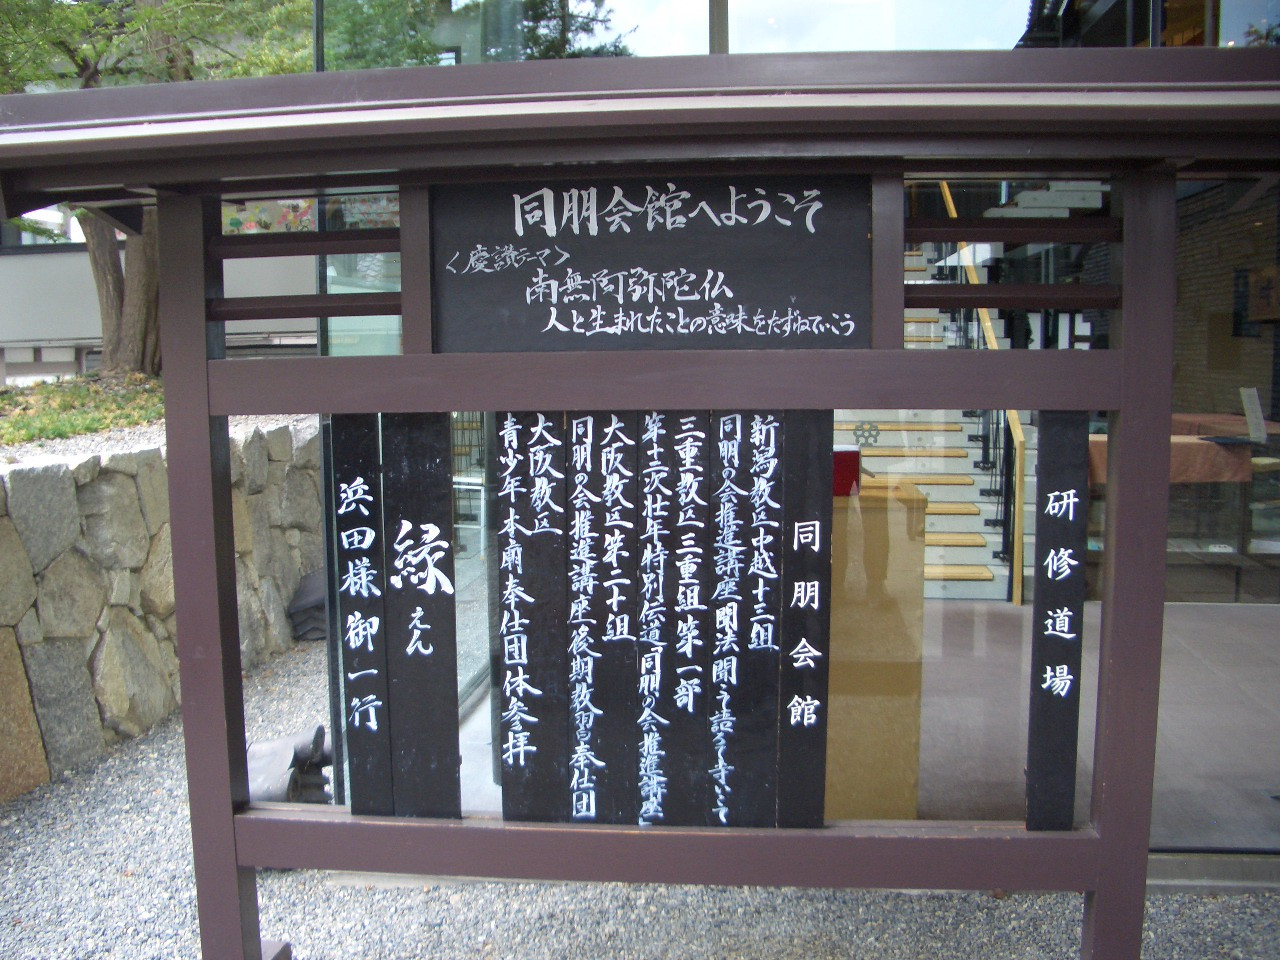 同朋会館へようこそ
〈慶讃テーマ〉
南無阿弥陀仏
人と生まれたことの意味をたずねていこう
研修道場
同朋会館
新潟教区中越十三組
同朋の会推進講座 聞法聞
三重教区三重組第一部
第十二次壮年特別伝道「同朋の会推進講座」
大阪教区第二十組
同朋の会推進講座後期教習奉仕団
大阪教区
青少年本廟奉仕団体参拝
縁
えん
浜田様御一行